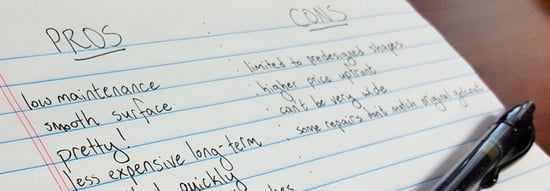 PROS
low maintenance
smooth surface
pretty!
less expensive long-term
quickly
CONS
: limited to predesigned shapes
: higher price upfront
: can't be very wide
: some repairs don't match original gelcoat